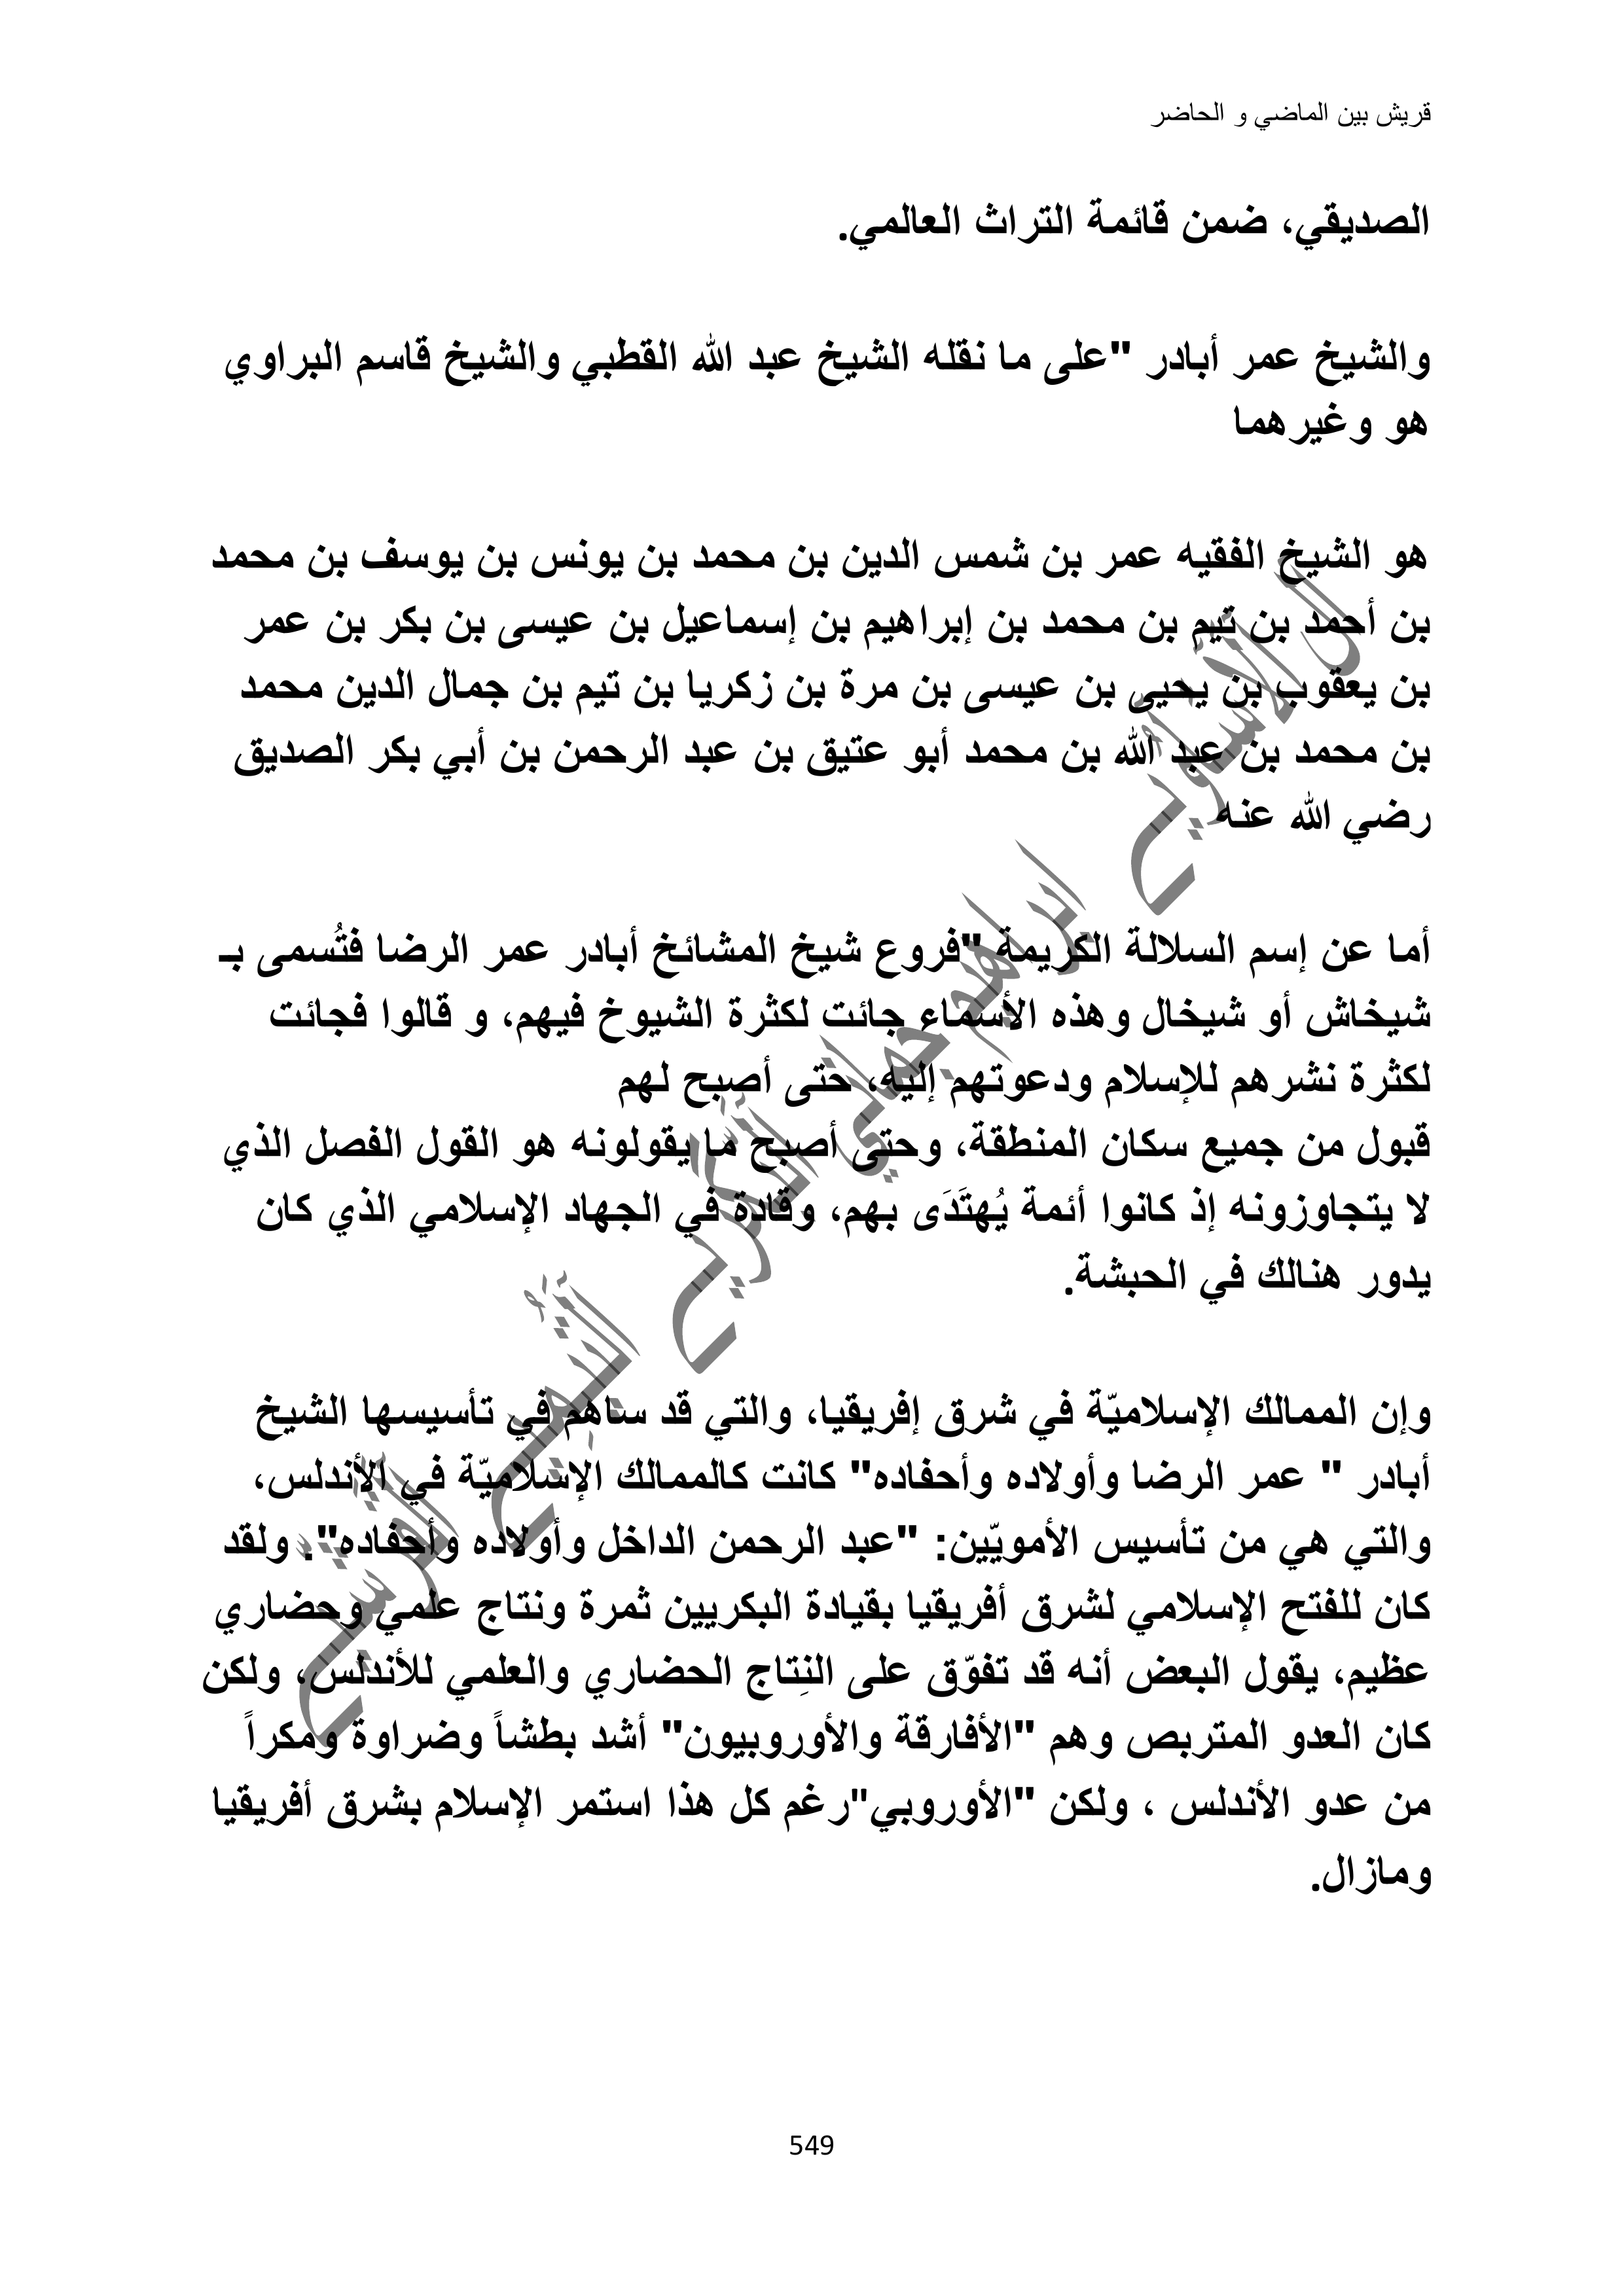 قريش بين الماضي و الحاضر
الصديقي، ضمن قائمة التراث العالمي.
والشيخ عمر أبادر "على ما نقله الشيخ عبد الله القطبي والشيخ قاسم البراوي
هو وغيرهما
هو الشيخ الفقيه عمر بن شمس الدين بن محمد بن يونس بن يوسف بن محمد
بن أحمد بن تيم بن محمد بن إبراهيم بن إسماعيل بن عيسى بن بكر بن عمر
بن يعقوب بن يحيى بن عيسى بن مرة بن زكريا بن تيم بن جمال الدين محمد
بن محمد بن عبد الله بن محمد أبو عتيق بن عبد الرحمن بن أبي بكر الصديق
رضي الله عنه
أما عن إسم السلالة الكريمة "فروع شيخ المشائخ أبادر عمر الرضا فتُسمى بـ
شيخاش أو شيخال وهذه الأسماء جائت لكثرة الشيوخ فيهم، و قالوا فجائت
لكثرة نشرهم للإسلام ودعوتهم إليه، حتى أصبح لهم
قبول من جميع سكان المنطقة، وحتى أصبح ما يقولونه هو القول الفصل الذي
لا يتجاوزونه إذ كانوا أئمة يُهتَدَى بهم، وقادة في الجهاد الإسلامي الذي كان
يدور هنالك في الحبشة.
وإن الممالك الإسلاميّة في شرق إفريقيا، والتي قد ساهم في تأسيسها الشيخ
أبادر " عمر الرضا وأولاده وأحفاده" كانت كالممالك الإسلاميّة في الأندلس،
والتي هي من تأسيس الأمويّين: "عبد الرحمن الداخل وأولاده وأحفاده". ولقد
كان للفتح الإسلامي لشرق أفريقيا بقيادة البكريين ثمرة ونتاج علمي وحضاري
عظيم، يقول البعض أنه قد تفوّق على النِتاج الحضاري والعلمي للأندلس، ولكن
كان العدو المتربص وهم "الأفارقة والأوروبيون" أشد بطشاً وضراوة ومكراً
من عدو الأندلس ، ولكن "الأوروبي"رغم كل هذا استمر الإسلام بشرق أفريقيا
ومازال.
549